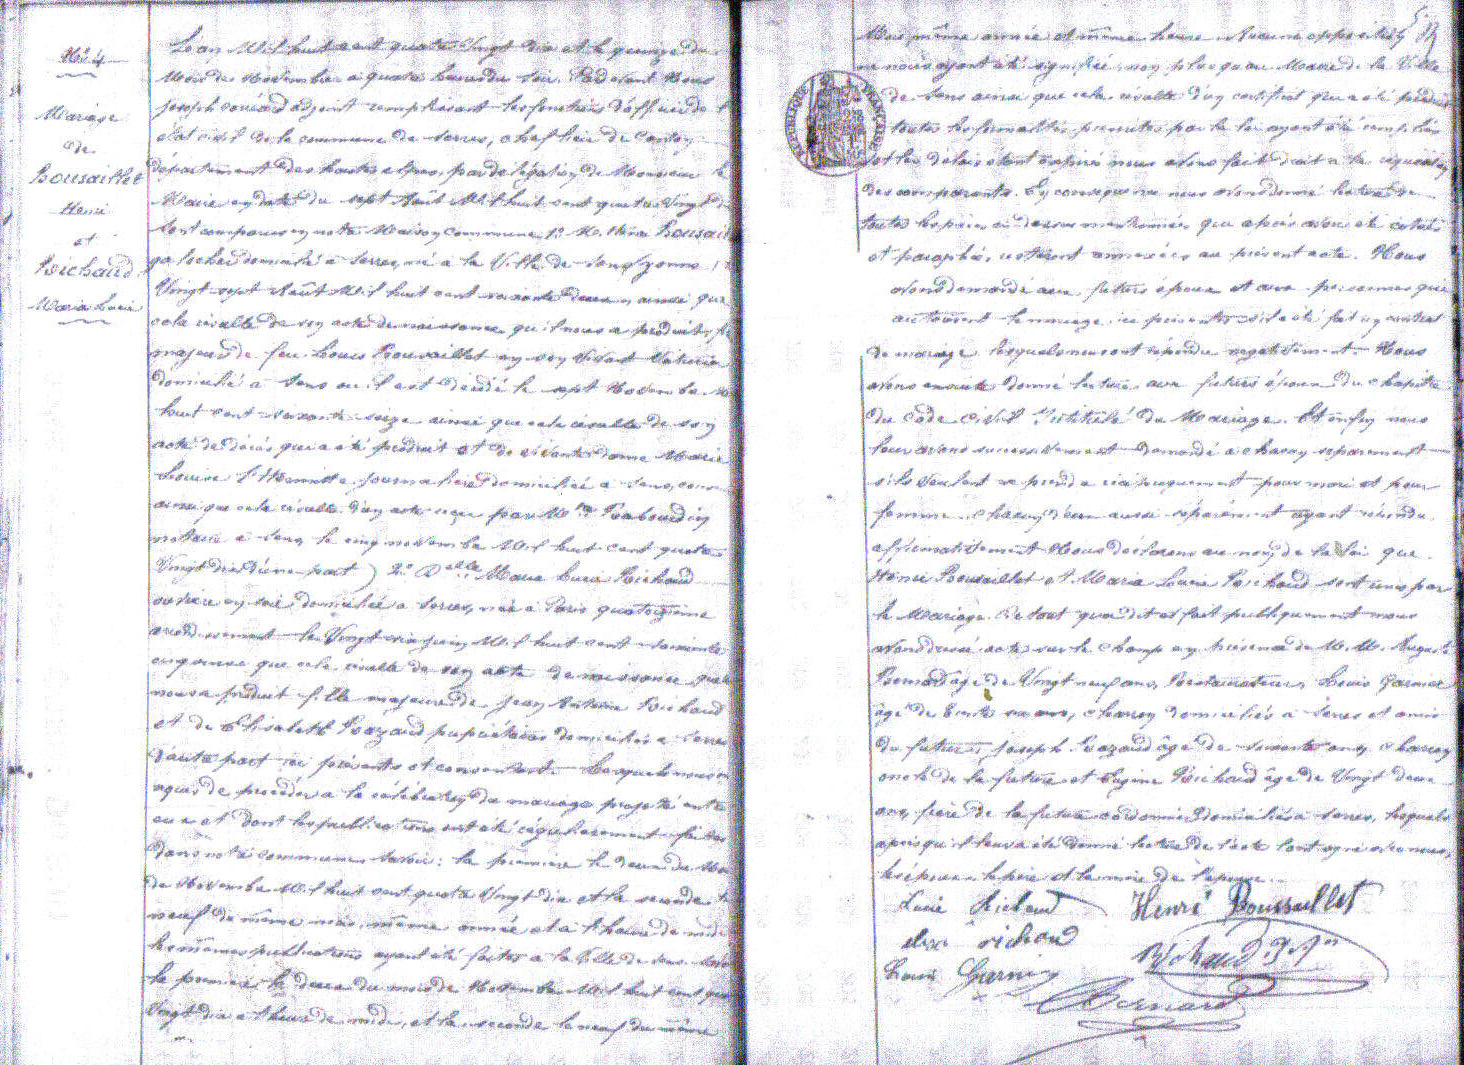 No 4
Mariage
de
Bousaillet
Henri
et
Richaud
Maria Lucie
L'an Mil huit cent quatre Vingt dix et le quinze du
Mois de Novembre a quatre heures du soir. Pardevant Nous
Joseph adjoint remplissant les fonctions d'officier de l'
état civil de la commune de Serres, chef lieu de Canton
département des hautes alpes, par délégation de Monsieur le
Maire en date du sept Août Mil huit cent quatre Vingt
Sont comparus en notre Maison commune 1º M. Henri Bousaill
domicilié à Serres, né a la Ville de Sens, Yonne, le
Vingt sept Août Mil huit cent soixante deux ainsi que
cela résulte de son acte de naissance qu'il nous a produit, fils
majeur de feu Louis Bousaillet en son Vivant
domicilié à Sens ou il est décédé le sept Novembre Mil
huit cent soixante seize ainsi que cela résulte de son
acte de décès qui a été produit et de Vivante dame Marie
Louise journalière domiciliée a Sens,
ainsi que cela résulte d'un acte reçu par Me Rabourdin
notaire a Sens le cinq novembre Mil huit cent quatre
Vingt dix D'une part) 2º Delle Maria Lucie Richaud
ouvrière en soie domiciliée a Serres, née a Paris quatorzième
arrondissement le Vingt six juin Mil huit cent soixante
cinq ainsi que cela résulte de son acte de naissance qu'elle
nous a produit fille majeure de Jean Antoine Richaud
et de Elisabeth Bazaud propriétaires domiciliés a Serres
D'autre part ici présents et consentants. Lesquels nous ont
requis de procéder a la célébration du mariage projeté entre
eux et dont les publications ont été régulièrement faites
dans notre commune savoir: la première le deux du Mois
de Novembre Mil huit cent quatre Vingt dix et la seconde le
neuf du même mois, même année et a l'heure de midi
les mêmes publications ayant été faites a la Ville de Sens
la première le deux du mois de Novembre Mil huit cent quatre
Vingt dix a l'heure de midi, et la seconde le neuf du même
Mois, même année et même heure. Aucune opposition
ne nous ayant été signifiée, non plus qu'au Maire de la Ville
de Sens ainsi que cela résulte d'un certificat qui a été produit
toutes les formalités prescrites par la loi ayant été remplies
et les délais étant expirés nous avons fait droit a la réquisition
des comparants. En conséquence nous avons donné lecture de
toutes les pièces ci dessus mentionnées qui après avoir été cotées
et paraphées, resteront annexées au présent acte. Nous
avons demandé aux futurs époux et aux personnes qui
autorisent le mariage ici présentes s'il a été fait un contrat
de mariage lesquels nous ont répondu négativement. Nous
avons ensuite donné lecture aux futurs époux du chapitre
du Code Civil Intitulé du Mariage. Et enfin nous
leur avons successivement demandé a chacun séparément
s'ils veulent se prendre réciproquement pour mari et pour
femme. Chacun d'eux aussi séparément ayant répondu
affirmativement Nous déclarons au nom de la Loi que
Henri Bousaillet et Maria Lucie Richaud sont unis par
le Mariage. De tout quoi dit et fait publiquement nous
avons dressé acte sur le champ en présence de M. M. Auguste
Bernard âgé de Vingt neuf ans, Restaurateur, Louis Garnier
âgé de trente ans, charron domiciliés a Serres et amis
du futur, Joseph Bazaud âgé de soixante ans, charron
oncle de la future et Eugène Richaud âgé de Vingt deux
ans, frère de la future cordonnier Domiciliés a Serres, lesquels
après qu'il leur a été donné lecture de l'acte l'ont signé avec nous,
les époux le père et la mère de l'épouse.
Lucie Richaud Henri Boussaillet
richaud Richaud
Louis Garnier
Bernard
RÉPUBLIQUE FRANÇAISE